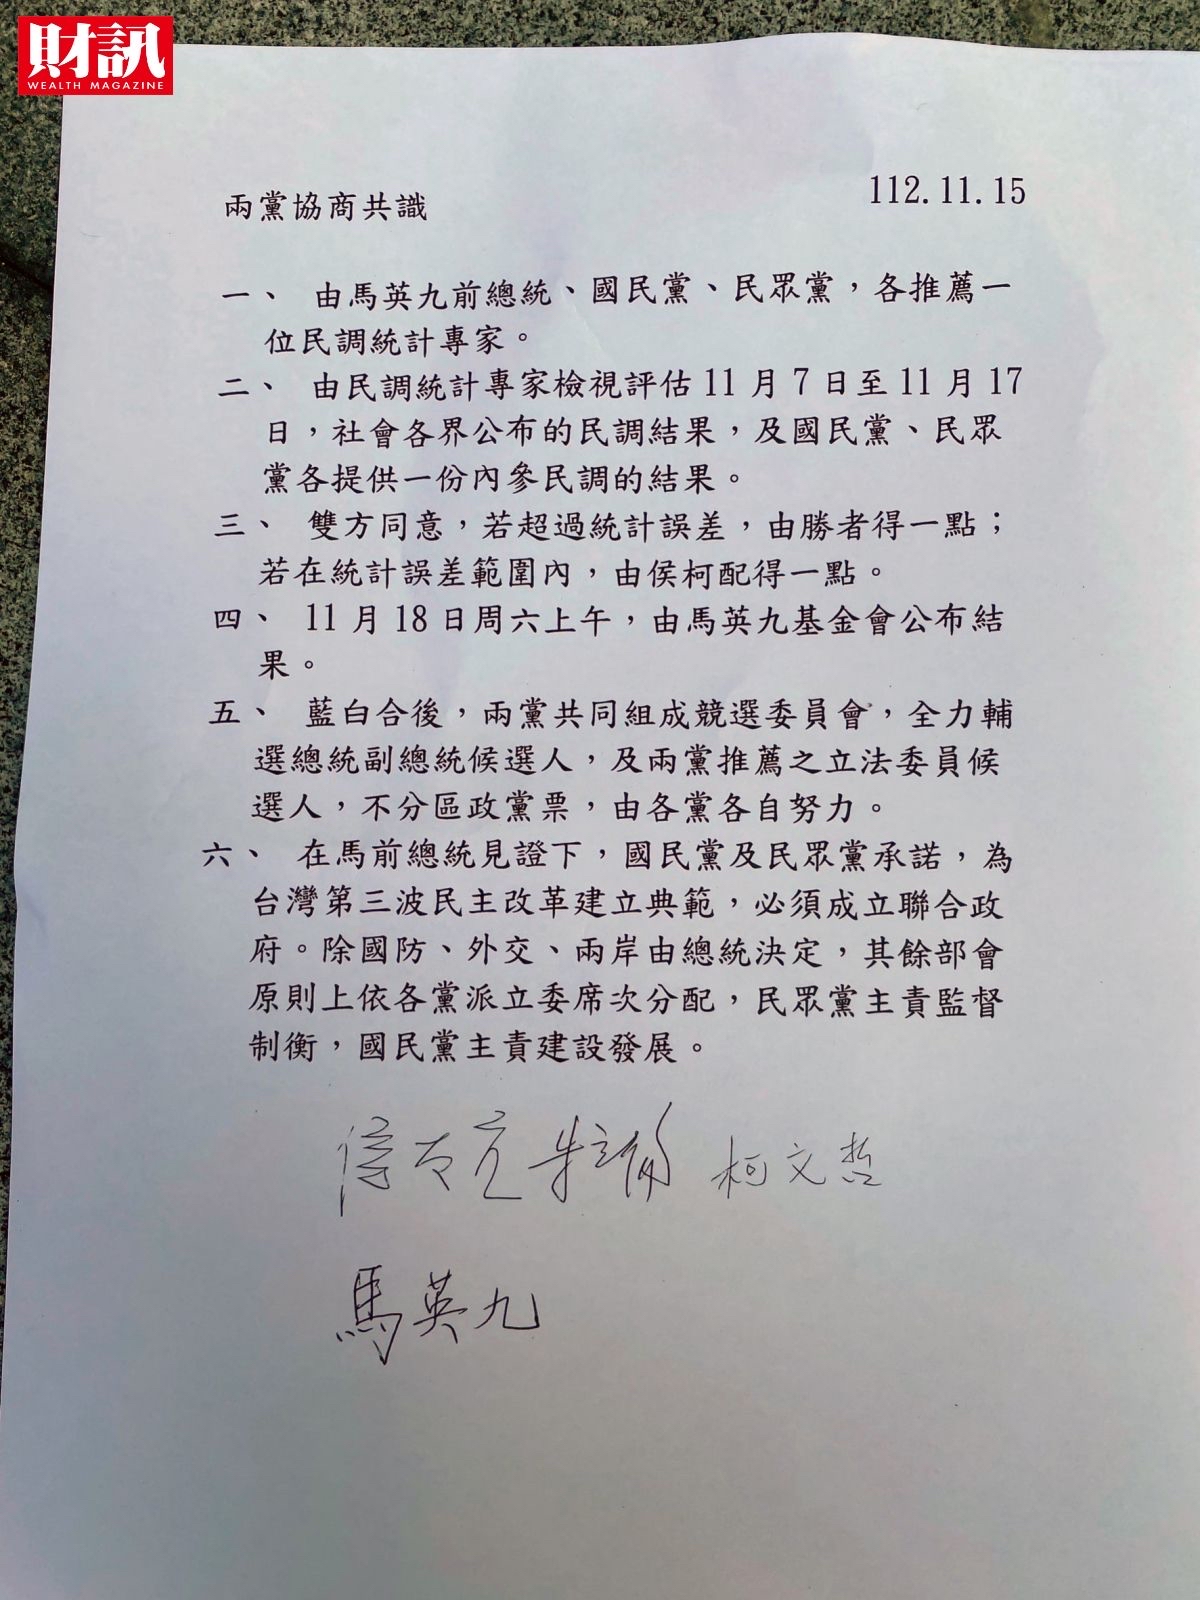 財訊
WEALTH MAGAZINE
兩黨協商共識
112.11.15
一、 由馬英九前總統、國民黨、民眾黨，各推薦一
位民調統計專家。
二、 由民調統計專家檢視評估11月7日至11月17
日，社會各界公布的民調結果，及國民黨、民眾
黨各提供一份內參民調的結果。
三、 雙方同意，若超過統計誤差，由勝者得一點；
若在統計誤差範圍內，由侯柯配得一點。
四、 11月18日周六上午，由馬英九基金會公布結
果。
五、 藍白合後，兩黨共同組成競選委員會，全力輔
選總統副總統候選人，及兩黨推薦之立法委員候
選人，不分區政黨票，由各黨各自努力。
六、 在馬前總統見證下，國民黨及民眾黨承諾，為
台灣第三波民主改革建立典範，必須成立聯合政
府。除國防、外交、兩岸由總統決定，其餘部會
原則上依各黨派立委席次分配，民眾黨主責監督
制衡，國民黨主責建設發展。
侯友宜 朱立倫 柯文哲
馬英九